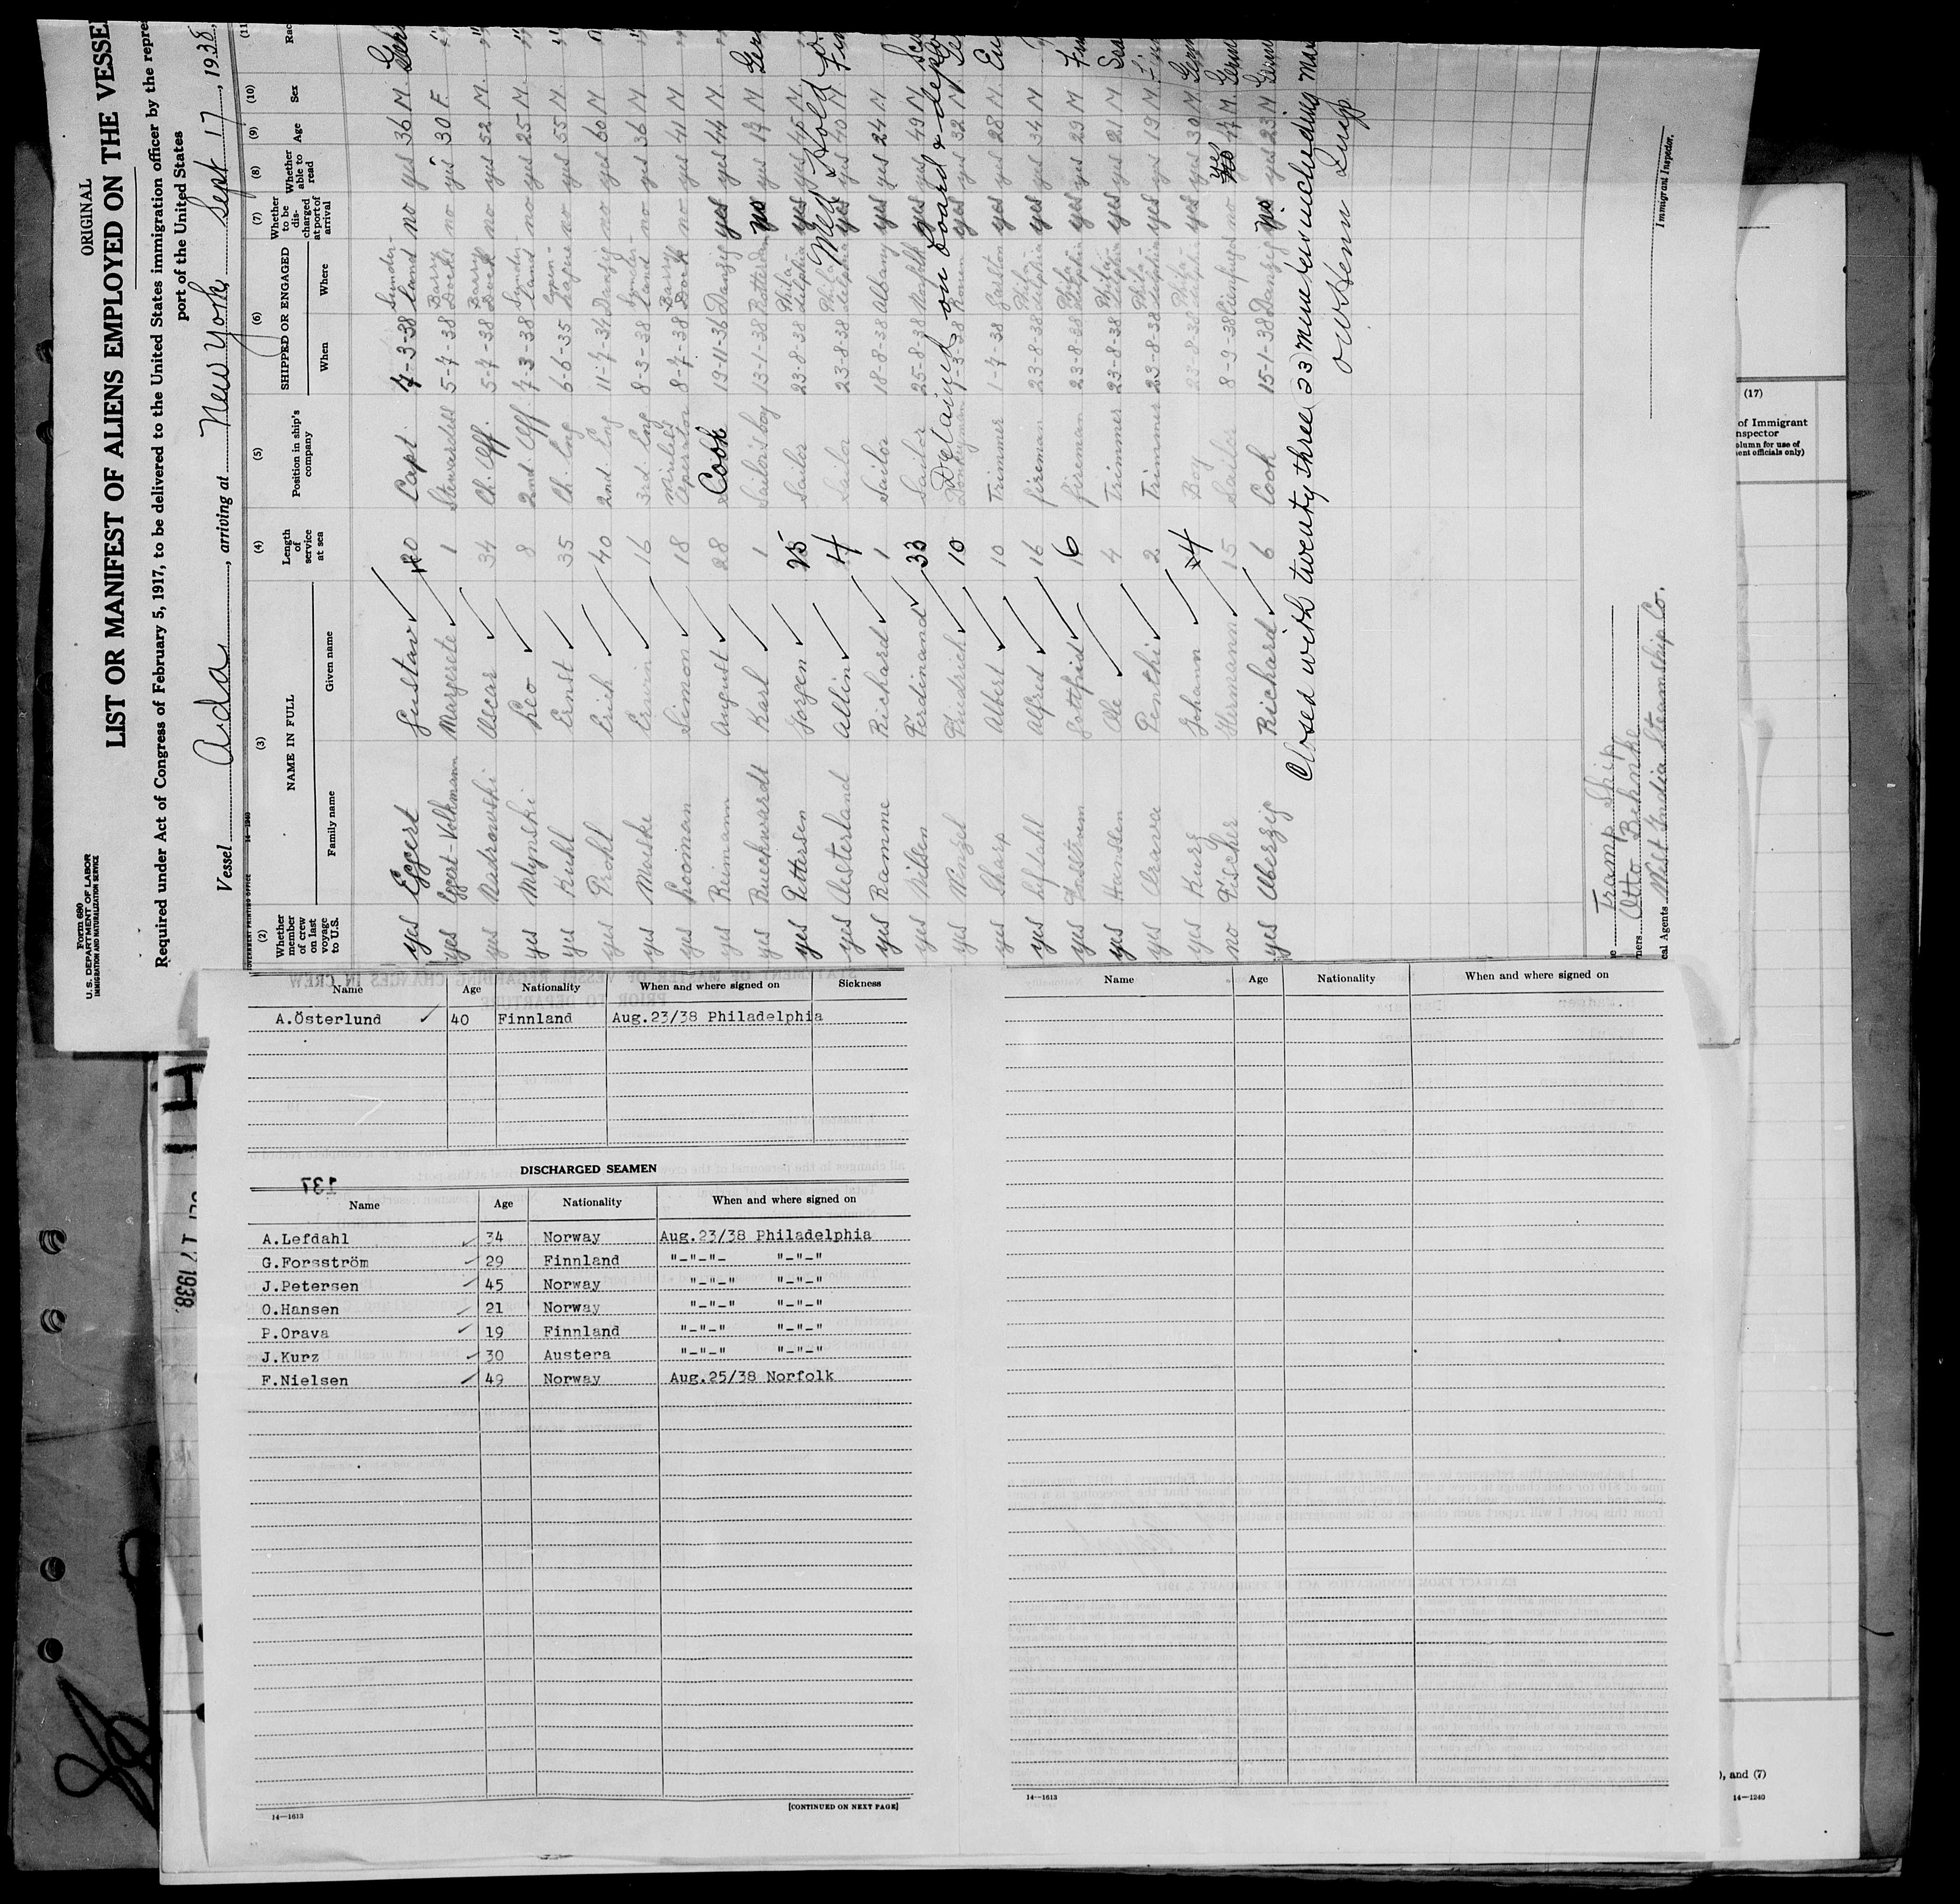 Form 680
U. S. DEPARTMENT OF LABOR
IMMIGRATION AND NATURALIZATION SERVICE
ORIGINAL
LIST OR MANIFEST OF ALIENS EMPLOYED ON THE VESSE
Required under Act of Congress of February 5, 1917, to be delivered to the United States immigration officer by the repre
port of the United States
Vessel Ada, arriving at New York, Sept 17, 1938,
(2) (3) (4) (5) (6) (7) (8) (9) (10) (11
Whether member of crew on last voyage to U.S. NAME IN FULL Family name Given name Length of service at sea Position in ship's company SHIPPED OR ENGAGED When Where Whether to be discharged at port of arrival Whether able to read Age Sex Rac
yes Eggert Gustav 20 Capt. 7-3-38 Sunderland no yes 36 M
yes Eggert-Volkmann Margerete 1 Stewardess 5-7-38 Barry Docks no yes 30 F
yes Nadrowski Oscar 34 Ch. Off. 5-7-38 Barry Dock no yes 52 M
yes Mlynski Leo 8 2nd Off. 7-3-38 Sunderland no yes 25 M
yes Kuhl Ernst 35 Ch. Eng 6-6-35 no yes 55 M
yes Prohl Erich 40 2nd Eng 11-7-34 Danzig no yes 60 M
yes Maske Erwin 16 3rd Eng 8-3-38 Sunderland no yes 36 M
yes Looman Simon 18 Wireless Operator 8-7-38 Barry Dock no yes 41 M
yes Reimann August 28 Cook 19-11-36 Danzig yes yes 44 M
yes Buchwardt Karl 1 Sailor's boy 13-1-38 Rotterdam no yes 17 M
yes Pettersen Jorgen 25 Sailor 23-8-38 Philadelphia yes yes 45 M
yes Oesterland Allin 4 Sailor 23-8-38 Philadelphia yes yes 40 M
yes Ramme Richard 1 Sailor 18-8-38 Albany yes yes 24 M
yes Nilsen Ferdinand 33 Sailor 25-8-38 Norfolk yes yes 49 M
yes Wenzel Friedrich 10 Donkeyman 7-3-38 Rouen yes yes 32 M
yes Sharp Albert 10 Trimmer 1-7-38 Garston yes yes 28 M
yes Lefdahl Alfred 16 fireman 23-8-38 Philadelphia yes yes 34 M
yes Forsstroem Gottfrid 16 fireman 23-8-38 Philadelphia yes yes 29 M
yes Hanssen Ole 4 Trimmer 23-8-38 Philadelphia yes yes 21 M
yes Orava Penthi 2 Trimmer 23-8-38 Philadelphia yes yes 19 M
yes Kurz Johann 4 Boy 23-8-38 Philadelphia yes yes 30 M
no Fischer Hermann 15 Sailor 8-9-38 Cienfuegos no yes 47 M
yes Oberzig Richard 6 Cook 15-1-38 Danzig no yes 23 M
Med Hold
Detained on board &
Closed with twenty three (23) members including
Tramp Ship
ners Otto Behnke
cal Agents West India Steamship Co.
Immigrant Inspector.
(17)
of Immigrant
nspector
olumn for use of
ent officials only)
Name Age Nationality When and where signed on Sickness
A.Österlund 40 Finnland Aug.23/38 Philadelphia
DISCHARGED SEAMEN
137
Name Age Nationality When and where signed on
A.Lefdahl 34 Norway Aug.23/38 Philadelphia
G.Forsström 29 Finnland "-"-"- "-"-"
J.Petersen 45 Norway "-"-" "-"-"
O.Hansen 21 Norway "-"-" "-"-"
P.Orava 19 Finnland "-"-" "-"-"
J.Kurz 30 Austera "-"-" "-"-"
F.Nielsen 49 Norway Aug.25/38 Norfolk
14—1613 [CONTINUED ON NEXT PAGE]
Name Age Nationality When and where signed on
14—1613
), and (7)
14—1240
17 1938